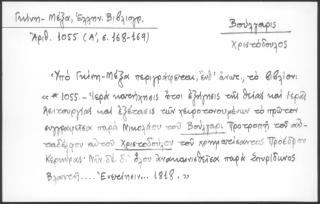 Γκίνη-Μέξα, Ἑλλην. Βιβλιογρ.
Ἀριθ. 1055 (Α', σ. 168-169)
Βούλγαρις
Χριστόδουλος
Ὑπὸ Γκίνη-Μέξα περιγράφεται, ἔνθ' ἀνωτ., τὸ βιβλίον:
«#1055.- Ἱερὰ κατήχησις ἤτοι ἐξήγησις τῆς θείας καὶ ἱερᾶς
λειτουργίας καὶ ἐξέτασις τῶν χειροτονουμένων τὸ πρῶτον
συγγραφεῖσα παρὰ Νικολάου τοῦ Βούλγαρι Προτροπῇ τοῦ αὐτ-
αδέλφου αὐτοῦ Χριστοδούλου τοῦ χρηματίσαντος Προέδρου
Κερκύρας. Νῦν δὲ δι' ὅλου ἀνακαινισθεῖσα παρὰ Σπυρίδωνος
Βλαντῆ.... Ἐνετίησιν... 1818.»